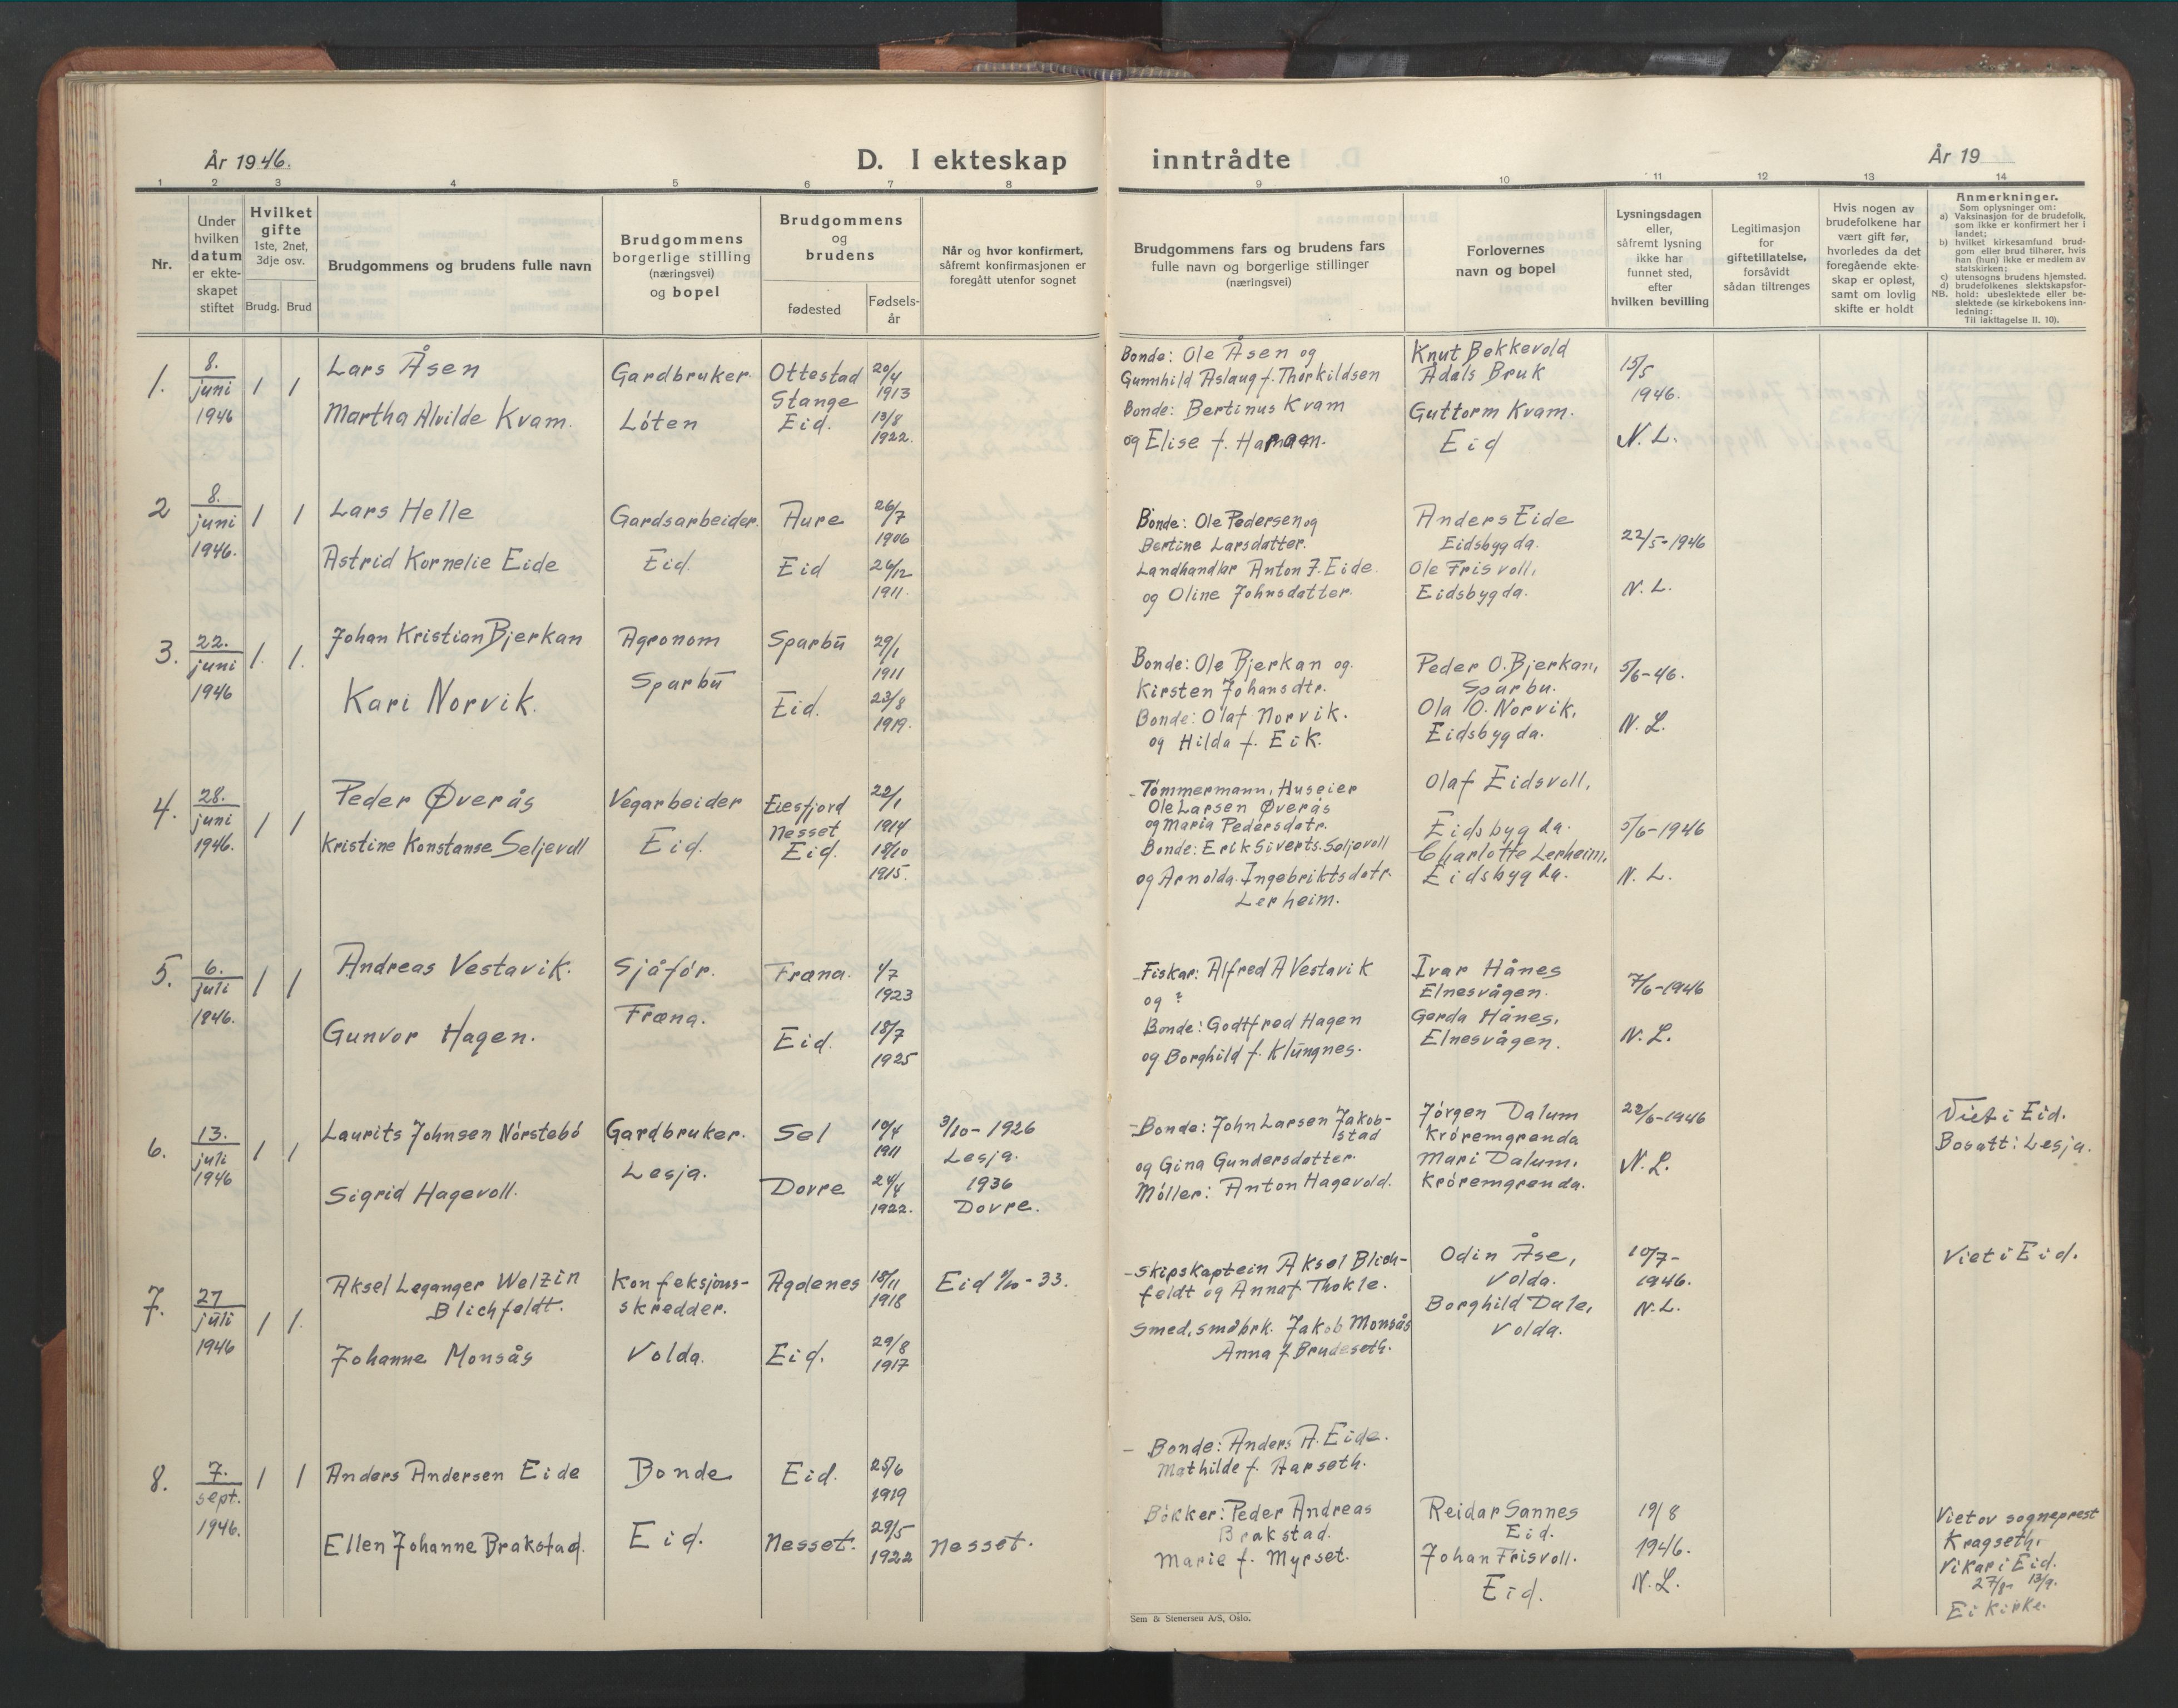 År 1946.
D. I ekteskap inntrådte
År 19
1 2 3 4 5 6 7 8 9 10 11 12 13 14
Nr.
Under hvilken datum er ekteskapet stiftet
Hvilket gifte 1ste, 2net, 3dje osv.
Brudg. Brud
Brudgommens og brudens fulle navn
Brudgommens borgerlige stilling (næringsvei) og bopel
Brudgommens og brudens
fødested
Fødselsår
Når og hvor konfirmert, såfremt konfirmasjonen er foregått utenfor sognet
Brudgommens fars og brudens fars fulle navn og borgerlige stillinger (næringsvei)
Forlovernes navn og bopel
Lysningsdagen eller, såfremt lysning ikke har funnet sted, efter hvilken bevilling
Legitimasjon for giftetillatelse, forsåvidt sådan tiltrenges
Hvis nogen av brudefolkene har vært gift før, hvorledes da det foregående ekteskap er opløst, samt om lovlig skifte er holdt
Anmerkninger.
Som oplysninger om:
a) Vaksinasjon for de brudefolk, som ikke er konfirmert her i landet;
b) hvilket kirkesamfund brudgom eller brud tilhører, hvis han (hun) ikke er medlem av statskirken;
c) utensogns brudens hjemsted.
d) brudefolkenes slektskapsforhold: ubeslektede eller beslektede (se kirkebokens innledning:
NB.
Til iakttagelse II. 10).
1.
8. juni 1946
1 1
Lars Åsen
Martha Alvilde Kvam.
Gardbruker
Løten
Ottestad
Stange
Eid.
20/4 1913
13/8 1922.
Bonde: Ole Åsen og
Gunnhild Aslaug f. Thorkildsen
Bonde: Bertinus Kvam
og Elise f.
Knut Bekkevold
Ådals Bruk
Guttorm Kvam.
Eid
15/5
1946.
N. L.
2
8. juni 1946.
1 1
Lars Helle
Astrid Kornelie Eide
Gardsarbeider.
Eid.
Aure
Eid
26/7 1906
26/12 1911.
Bonde: Ole Pedersen og
Bertine Larsdatter.
Landhandlar Anton J. Eide.
og Oline Johnsdatter.
Anders Eide
Eidsbygda.
Ole Frisvoll,
Eidsbygda.
22/5-1946
N. L.
3.
22. juni 1946
1. 1.
Johan Kristian Bjerkan
Kari Norvik.
Agronom
Sparbu
Sparbu
Eid.
29/1 1911
23/8 1919.
Bonde: Ole Bjerkan og.
Kirsten Johansdtr.
Bonde: Olaf Norvik.
og Hilda f. Eik.
Peder O. Bjerkan,
Sparbu.
Ola O. Norvik,
Eidsbygda.
5/6-46.
N. L.
4.
28. juni 1946.
1 1
Peder Øverås
Kristine Konstanse Seljevoll
Vegarbeider
Eid.
Eiesfjord
Nesset
Eid.
22/1 1914
18/10 1915.
Tømmermann, Huseier
Ole Larsen Øverås
og Maria Pedersdatr.
Bonde: Erik Siverts. Seljevoll
og Arnolda Ingebriktsdatr.
Lerheim.
Olaf Eidsvoll,
Eidsbygda.
Charlotte Lerheim,
Eidsbygda.
5/6-1946
N. L.
5.
6. juli 1946.
1 1
Andreas Vestavik.
Gunvor Hagen.
Sjåfør.
Fræna.
Fræna.
Eid.
1/7 1923
18/7 1925
Fiskar: Alfred A Vestavik
og ?
Bonde: Godtfred Hagen
og Borghild f. Klungnes.
Ivar Hånes
Elnesvågen.
Gerda Hånes,
Elnesvågen.
7/6-1946
N. L.
6.
13. juli 1946
1 1
Laurits Johnsen Nørstebø
Sigrid Hagevoll.
Gardbruker.
Lesja.
Sel
Dovre
10/4 1911
24/4 1922.
3/10-1926
Lesja.
1936
Dovre.
Bonde: John Larsen Jakobstad
og Gina Gundersdatter.
Møller: Anton Hagevold.
Jørgen Dalum
Krøremgrenda
Mari Dalum,
Krøremgrenda.
22/6-1946
N. L.
Viet i Eid.
Bosatt: Lesja.
7.
27 juli 1946
1 1.
Aksel Leganger Welzin
Blichfeldt.
Johanne Monsås
Konfeksjons-
skredder.
Volda.
Agdenes
Eid.
18/11 1918
29/8 1917
Eid 1/10-33.
Skipskaptein Aksel Blich-
feldt og Anna f Thokle.
Smed, småbrk. Jakob Monsås
Anna f Brudeseth.
Odin Åse,
Volda.
Borghild Dale,
Volda.
10/7-
1946.
N. L.
Viet i Eid.
8.
7. sept. 1946.
1 1
Anders Andersen Eide
Ellen Johanne Brakstad.
Bonde
Eid.
Eid.
Nesset.
25/6 1919
29/5 1922
Nesset.
Bonde: Anders A. Eide.
Mathilde f. Aarseth.
Bøkker: Peder Andreas
Brakstad.
Marie f. Myrset.
Reidar Sannes
Eid.
Johan Frisvoll.
Eid.
19/8
1946.
N. L.
Viet ov sogneprest
Kragseth,
Vikar i Eid.
27/8- 13/9.
Ei kirke.
Sem & Stenersen A/S, Oslo.